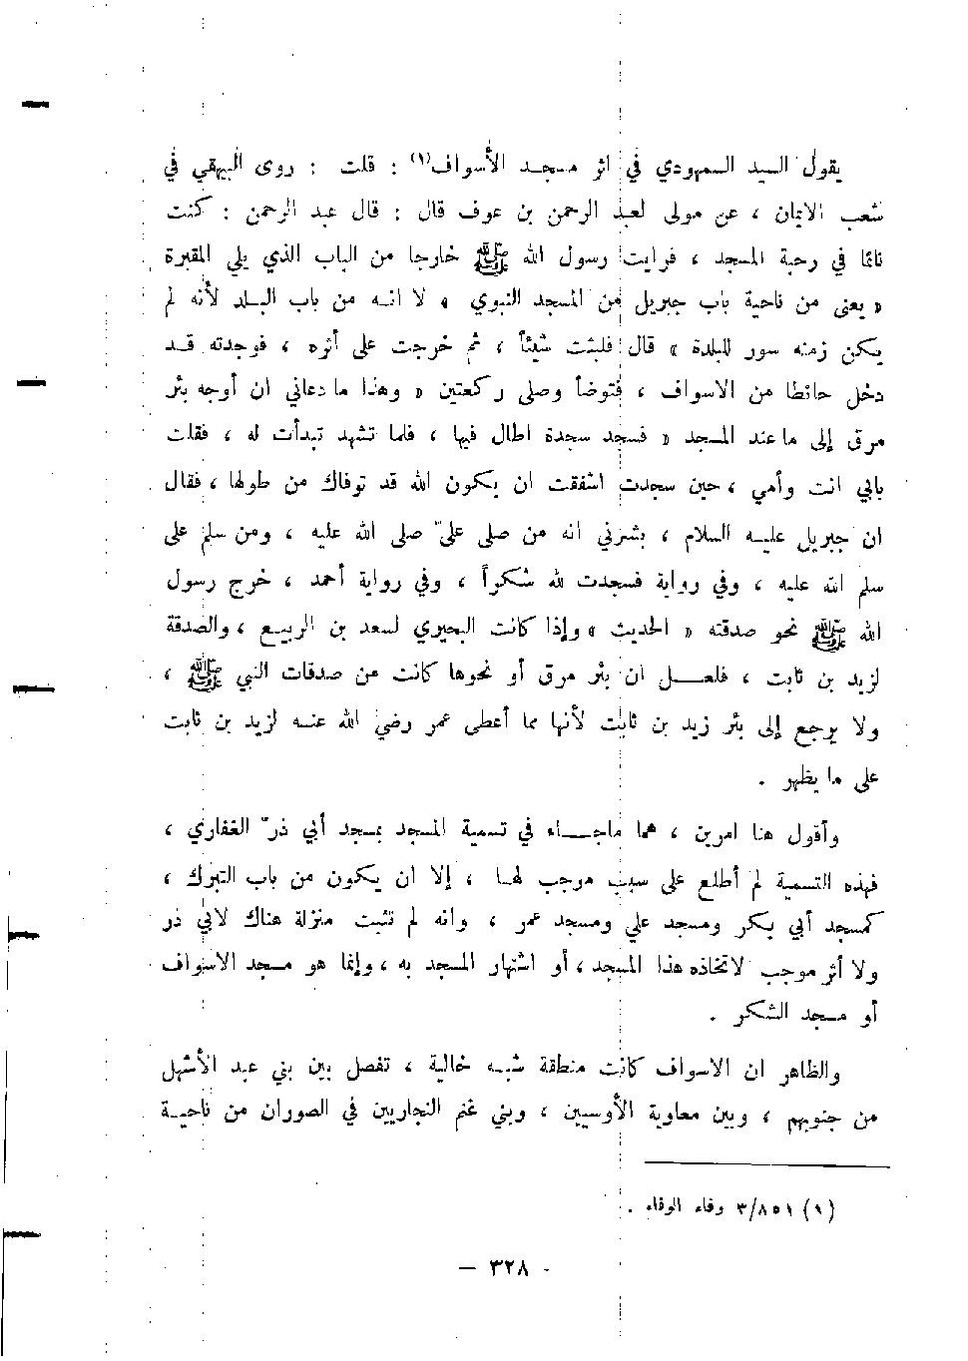 يقول السيد السمهودي في اثر مسجد الأسواف(١) : قلت : روى البيهقي في
شعب الايمان ، عن مولى لعبد الرحمن بن عوف قال : قال عبد الرحمن : كنت
نائما في رحبة المسجد ، فرايت رسول الله ﷺ خارجا من الباب الذي يلي المقبرة
« يعنى من ناحية باب جبريل من المسجد النبوي » لا انه من باب البلد لأنه لم
يكن زمنه سور للبلدة » قال فلبثت شيئاً ، ثم خرجت على أثره ، فوجدته قد
دخل حائطا من الاسواف ، فتوضأ وصلى ركعتين « وهذا ما دعاني ان أوجه بئر
مرق إلى ما عند المسجد » فسجد سجدة اطال فيها ، فلما تشهد تبدأت له ، فقلت
بابي انت وأمي ، حين سجدت اشفقت ان يكون الله قد توفاك من طولها ، فقال
ان جبريل عليه السلام ، بشرني انه من صلى عليّ صلى الله عليه ، ومن سلم على
سلم الله عليه ، وفي رواية فسجدت لله شكراً ، وفي رواية أحمد ، خرج رسول
الله ﷺ نحو صدقته « الحديث » وإذا كانت البحيري لسعد بن الربيع ، والصدقة
لزيد بن ثابت ، فلعل ان بئر مرق أو نحوها كانت من صدقات النبي ﷺ ،
ولا يرجع إلى بئر زيد بن ثابت لأنها مما أعطى عمر رضي الله عنه لزيد بن ثابت
على ما يظهر .
وأقول هنا امرين ، هما ماجاء في تسمية المسجد بمسجد أبي ذرّ الغفاري ،
فهذه التسمية لم أطلع على سبب موجب لها ، إلا ان يكون من باب التبرك ،
كمسجد أبي بكر ومسجد علي ومسجد عمر ، وانه لم تثبت منزلة هناك لابي ذر
ولا أثر موجب لاتخاذه هذا المسجد ، أو اشتهار المسجد به ، وإنما هو مسجد الاسواف
أو مسجد الشكر .
والظاهر ان الاسواف كانت منطقة شبه خالية ، تفصل بين بني عبد الأشهل
من جنوبهم ، وبين معاوية الأوسيين ، وبني غنم النجاريين في الصوران من ناحية
(١) ٣/٨٥١ وفاء الوفاء .
— ٣٢٨ -